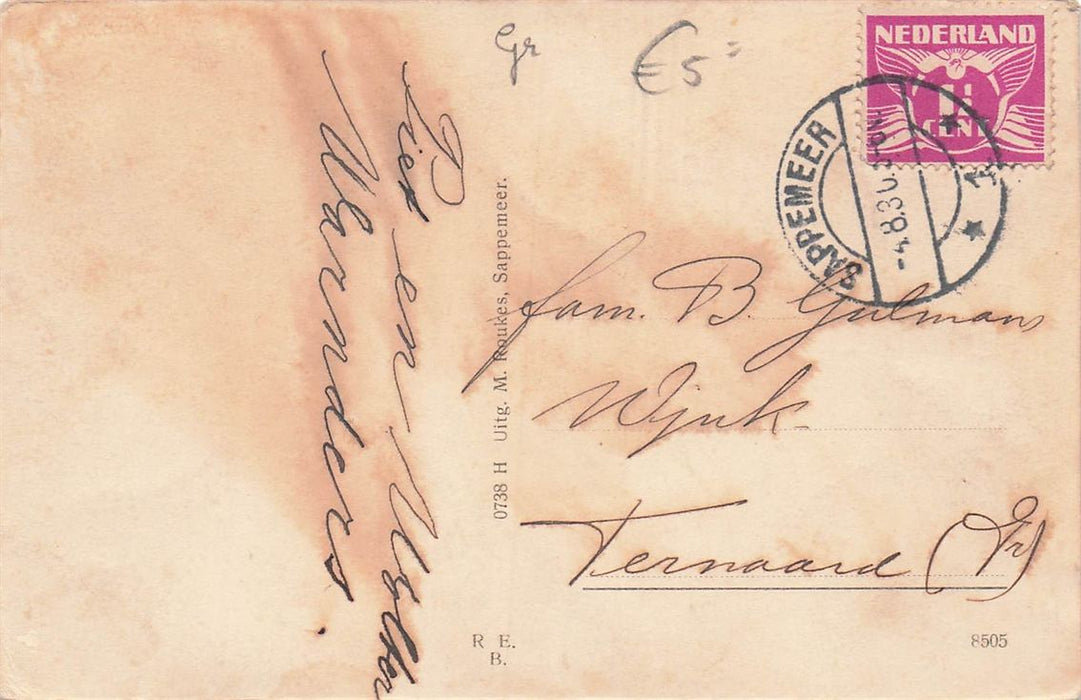 Gr
€ 5 =
NEDERLAND
1½
CENT
SAPPEMEER
-4.8.30.
1
Piet en
Wanders.
0738 H Uitg. M. Roukes, Sappemeer.
fam. B. Gulmans
Wijnk.
Ternaard (Fr)
R. E.
B.
8505